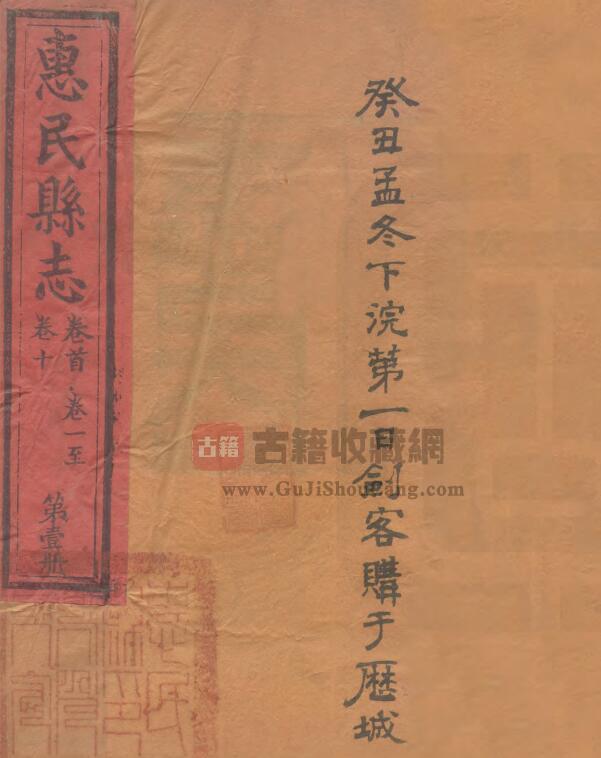 癸丑孟冬下浣第一日劍客購于歴城
惠民縣志
卷首·卷一至
卷十
第壹册
古籍 古籍收藏網
www.GuJiShouCang.com